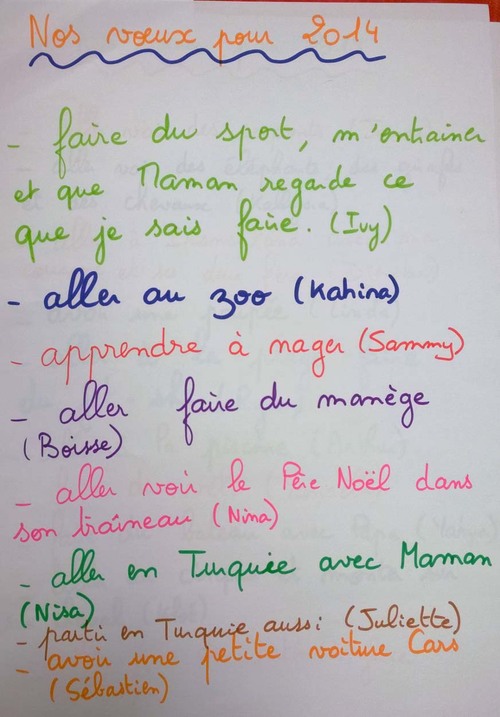 Nos vœux pour 2014
- faire du sport, m'entrainer
et que Maman regarde ce
que je sais faire. (Ivy)
- aller au zoo (Kahina)
- apprendre à nager (Sammy)
- aller faire du manège
(Boisse)
- aller voir le Père Noël dans
son traîneau (Nina)
- aller en Turquie avec Maman
(Nisa)
- partir en Turquie aussi (Juliette)
- avoir une petite voiture Cars
(Sébastien)